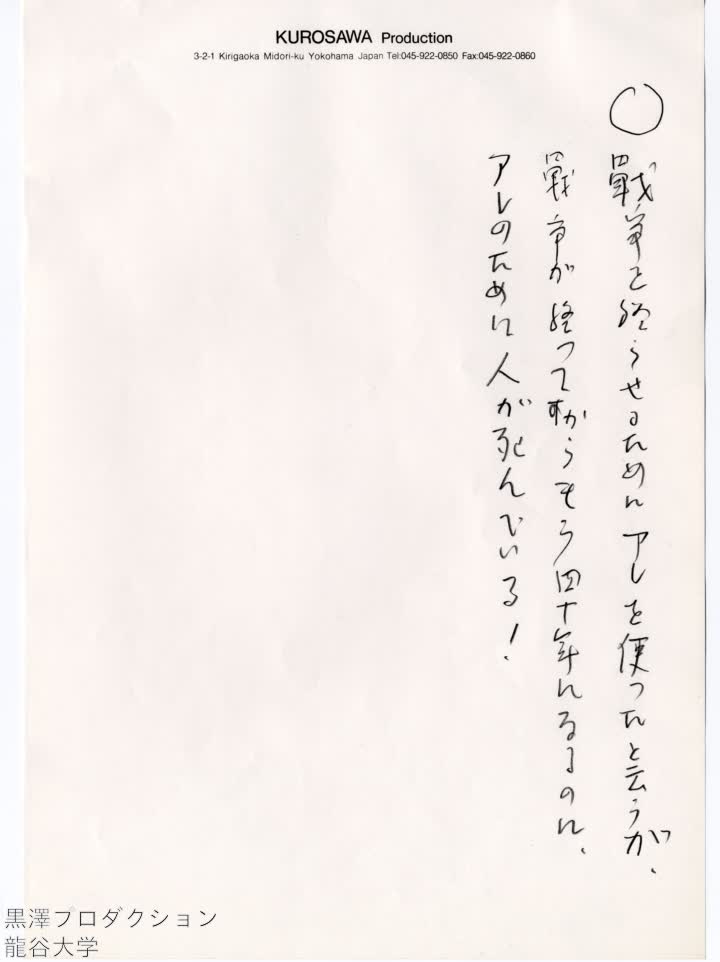 KUROSAWA Production
3-2-1 Kirigaoka Midori-ku Yokohama Japan Tel:045-922-0850 Fax:045-922-0860
○
戰争を終らせるためにアレを使ったと云うが、
戰争が終ってからもう四十年になるのに、
アレのために人が死んでいる！
黒澤プロダクション
龍谷大学